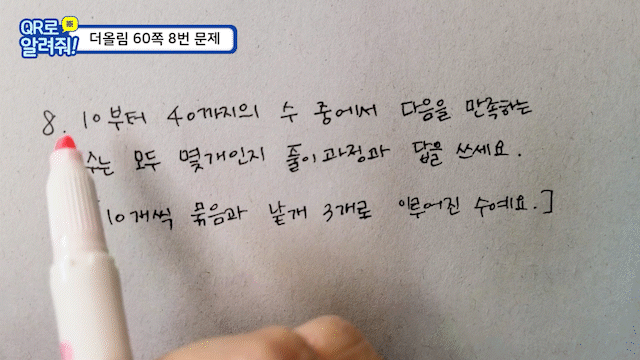 QR로
알려줘!
더올림 60쪽 8번 문제
8. 10부터 40까지의 수 중에서 다음을 만족하는
수는 모두 몇개인지 풀이과정과 답을 쓰세요.
10개씩 묶음과 낱개 3개로 이루어진 수예요.]